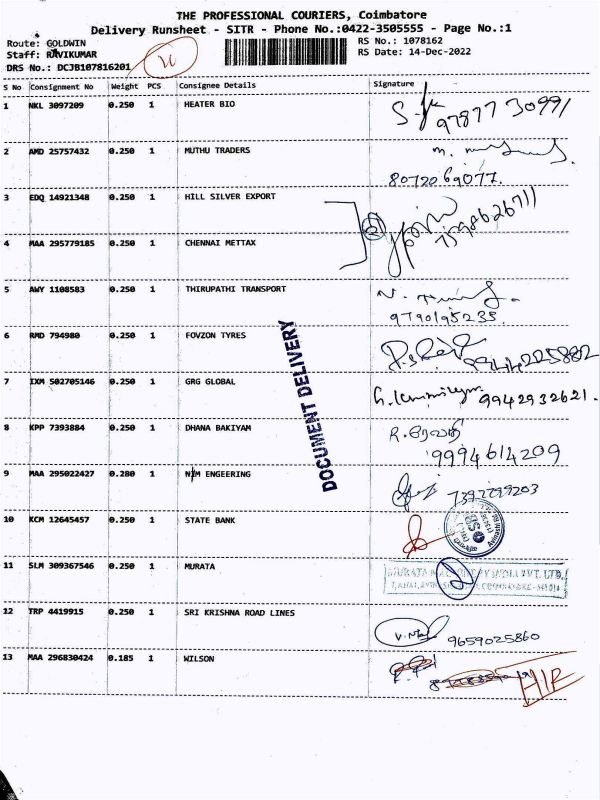 THE PROFESSIONAL COURIERS, Coimbatore
Delivery Runsheet - SITR - Phone No.:0422-3505555 - Page No.:1
Route: GOLDWIN
RS No.: 1078162
Staff: RAVIKUMAR
RS Date: 14-Dec-2022
DRS No.: DCJB107816201
S No Consignment No Weight PCS Consignee Details Signature
1 NKL 3097209 0.250 1 HEATER BIO
9787730991
2 AMD 25757432 0.250 1 MUTHU TRADERS
8072069077.
3 EDQ 14921348 0.250 1 HILL SILVER EXPORT
7598626711
4 MAA 295779185 0.250 1 CHENNAI METTAX
5 AWY 1108583 0.250 1 THIRUPATHI TRANSPORT
9790195235.
6 RMD 794980 0.250 1 FOVZON TYRES
9944225882
7 IXM 502705146 0.250 1 GRG GLOBAL
9942932621.
8 KPP 7393884 0.250 1 DHANA BAKIYAM
R. ரேவதி
9994614209
9 MAA 295022427 0.280 1 ENGEERING
10 KCM 12645457 0.250 1 STATE BANK
SBI
11 SLM 309367546 1 MURATA
12 TRP 4419915 0.250 1 SRI KRISHNA ROAD LINES
9659025860
13 MAA 296830424 0.185 1 WILSON
DOCUMENT DELIVERY